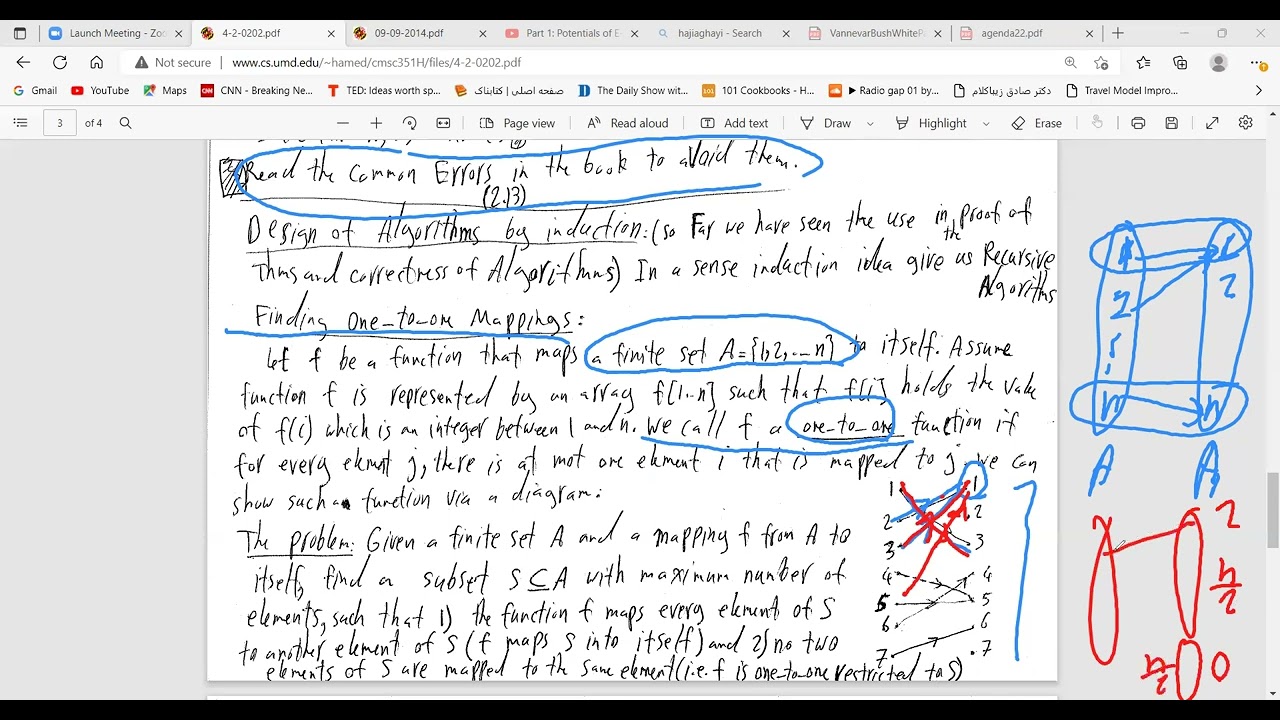 Launch Meeting - Zoo
4-2-0202.pdf
09-09-2014.pdf
Part 1: Potentials of E
hajiaghayi - Search
VannevarBushWhiteP
agenda22.pdf
Not secure
www.cs.umd.edu/~hamed/cmsc351H/files/4-2-0202.pdf
Gmail
YouTube
Maps
CNN - Breaking Ne...
TED: Ideas worth sp...
صفحه اصلی | کتابناک
The Daily Show wit...
101 Cookbooks - H...
Radio gap 01 by...
دکتر صادق زیباکلام
Travel Model Impro...
3 of 4
Page view
Read aloud
Add text
Draw
Highlight
Erase
Read the Common Errors in the book to avoid them.
(2.13)
Design of Algorithms by induction: (so Far we have seen the use in the proof of
thms and correctness of Algorithms) In a sense induction idea give us Recursive
Algorithms
Finding One-to-one Mappings:
Let f be a function that maps a finite set A={1,2,...n} to itself. Assume
function f is represented by an array f[1..n] such that f[i] holds the value
of f(i) which is an integer between 1 and n. We call f a one-to-one function if
for every elemnt j, there is at mot one element i that is mapped to j. we can
show such a function via a diagram:
The problem: Given a finite set A and a mapping f from A to
itself, find a subset S⊆A with maximum number of
elements, such that 1) the function f maps every element of S
to another element of S (f maps S into itself) and 2) no two
elements of S are mapped to the same element (i.e. f is one-to-one restricted to S)
1 1
2 2
3 3
4 4
5 5
6 6
7 7
1 1
2 2
n n
A A
2
n/2
n/2 0